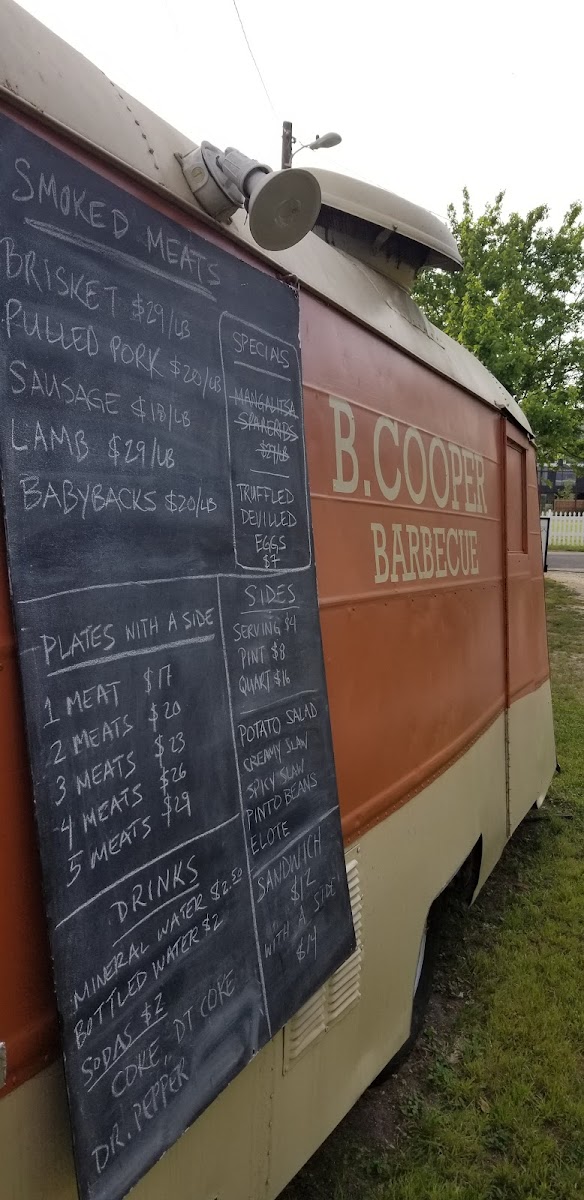 SMOKED MEATS
BRISKET $29/LB
PULLED PORK $20/LB
SAUSAGE $18/LB
LAMB $29/LB
BABYBACKS $20/LB
SPECIALS
MANGALITSA
SPARERIBS
$29/LB
TRUFFLED
DEVILLED
EGGS
$7
PLATES WITH A SIDE
1 MEAT $17
2 MEATS $20
3 MEATS $23
4 MEATS $26
5 MEATS $29
SIDES
SERVING $4
PINT $8
QUART $16
POTATO SALAD
CREAMY SLAW
SPICY SLAW
PINTO BEANS
ELOTE
SANDWICH
$12
WITH A SIDE
$14
DRINKS
MINERAL WATER $2.50
BOTTLED WATER $2
SODAS $2
COKE, DT COKE
DR. PEPPER
B.COOPER
BARBECUE